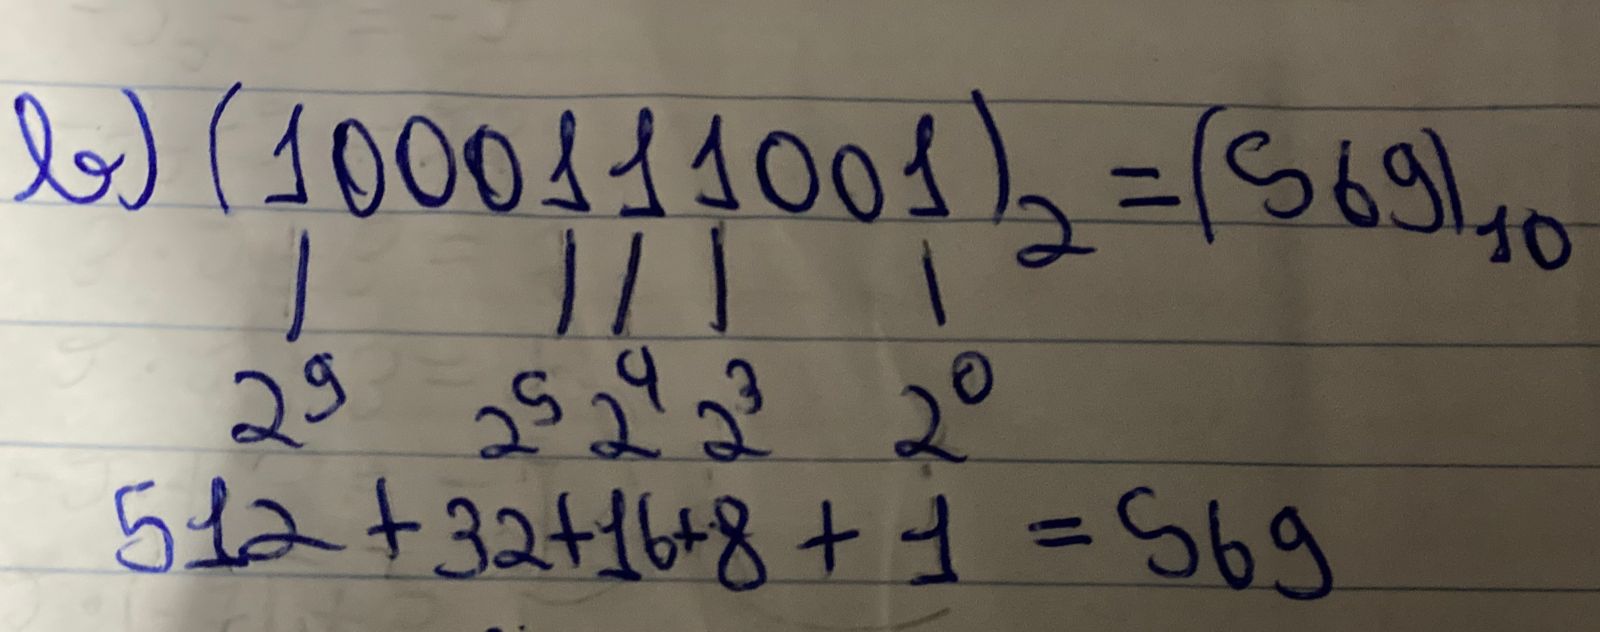 b) (1000111001)₂ = (569)₁₀
2⁹ 2⁵ 2⁴ 2³ 2⁰
512 + 32 + 16 + 8 + 1 = 569